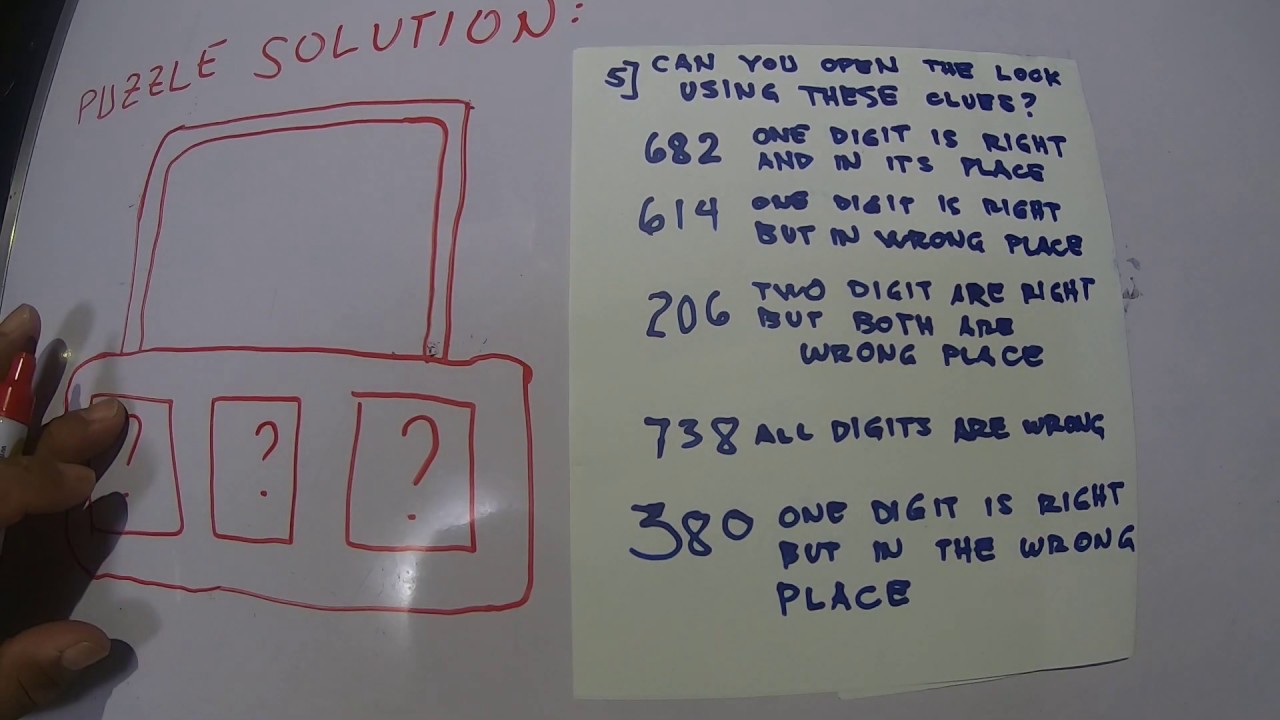 PUZZLE SOLUTION:
5] CAN YOU OPEN THE LOCK
USING THESE CLUES?
682 ONE DIGIT IS RIGHT
AND IN ITS PLACE
614 ONE DIGIT IS RIGHT
BUT IN WRONG PLACE
206 TWO DIGIT ARE RIGHT
BUT BOTH ARE
WRONG PLACE
738 ALL DIGITS ARE WRONG
380 ONE DIGIT IS RIGHT
BUT IN THE WRONG
PLACE
? ? ?